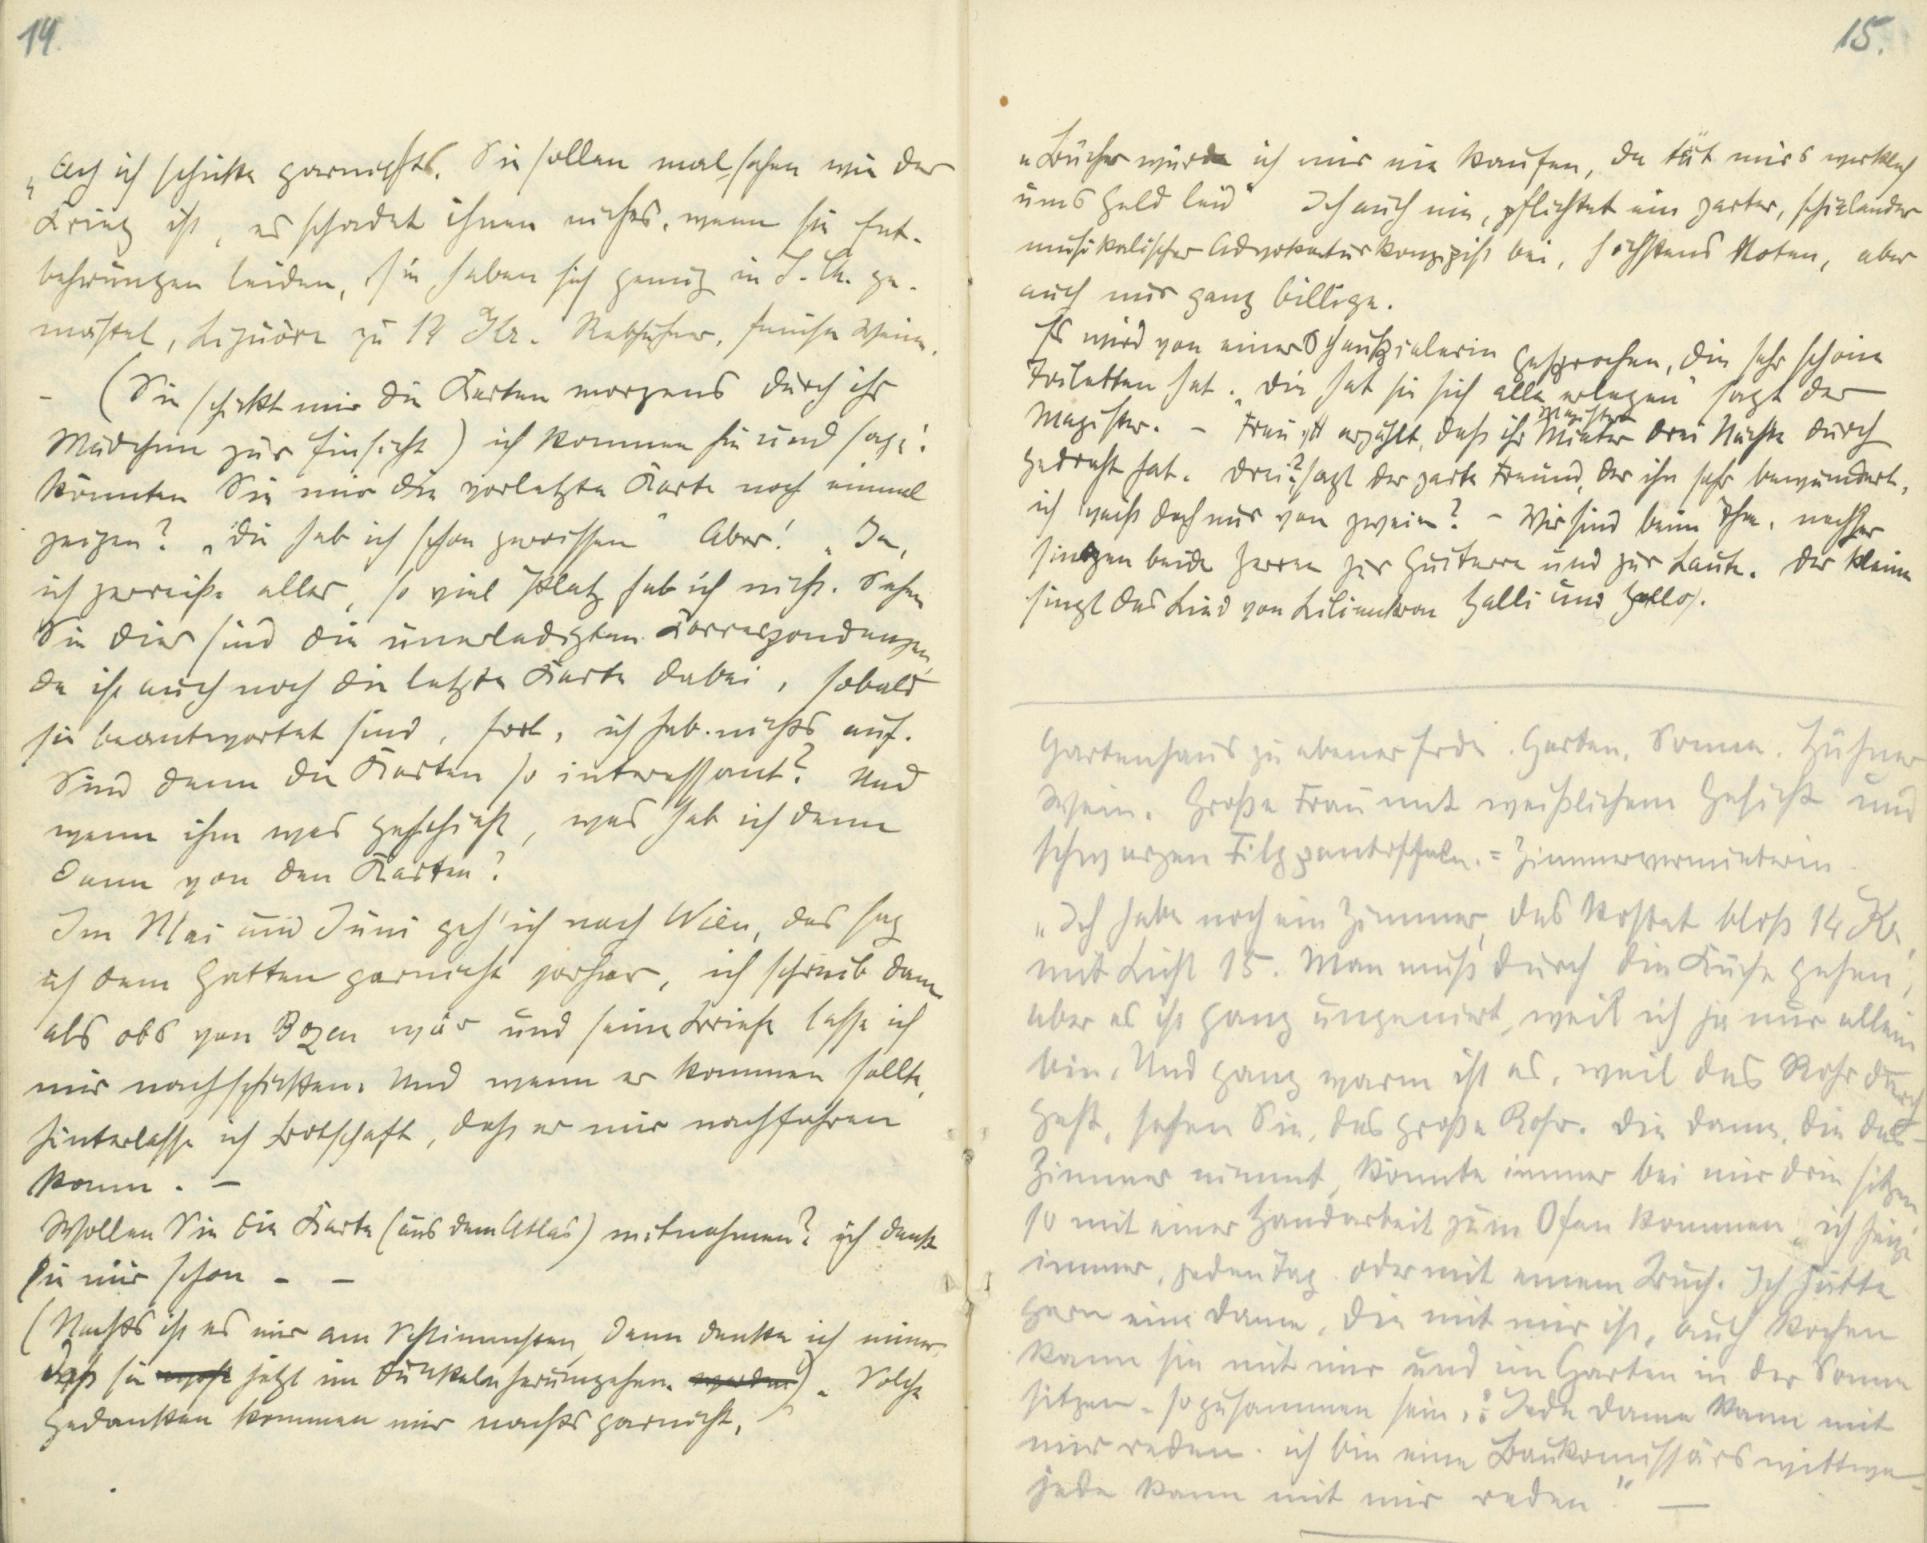 14.
"Ach ich schicke garnichts. Sie sollen mal sehen wie der
Krieg ist, es schadet ihnen nichts, wenn sie Ent-
behrungen leiden, sie haben sich genug in S. Ch. ge-
mästet, Liquöre zu 14 Kr. Rebhühner, feinste Weine.
- (Sie schickt mir die Karten morgens durch ihr
Mädchen zur Einsicht) ich komme hin und sage:
könnten Sie mir die vorletzte Karte noch einmal
zeigen? "Die hab ich schon zerrissen" Aber! "Ja,
ich zerreiße alles, so viel Platz hab ich nicht. Sehen
Sie dies sind die unerledigten Korrespondenzen,
da ist auch noch die letzte Karte dabei, sobald
sie beantwortet sind, fort, ich heb nichts auf.
Sind denn die Karten so interessant? Und
wenn ihm was geschieht, was hab ich denn
dann von den Karten?
Im Mai und Juni geh' ich nach Wien, das sag
ich dem Gatten garnicht vorher, ich schreib dann
als obs von Bozen wär und seine Briefe lasse ich
mir nachschicken. Und wenn er kommen sollte,
hinterlasse ich Botschaft, daß er mir nachfahren
kann. -
Wollen Sie die Karte (aus dem Atlas) mitnehmen? ich denke
sie mir schon - -
(Nachts ist es mir am Schlimmsten, dann denke ich immer,
daß sie jetzt im Dunkeln herumgehen.) Solche
Gedanken kommen mir nachts garnicht.
15.
"Bücher würde ich mir nie kaufen, da tät mirs wirklich
ums Geld leid" Ich auch nie, pflichtet ein zarter, schielender
musikalischer Advokaturskonzipist bei, höchstens Noten, aber
auch nur ganz billige.
Es wird von einer Schauspielerin gesprochen, die sehr schöne
Toiletten hat. "Die hat sie sich alle erlegen" sagt der
Magister. - Frau M erzählt, daß ihr Mieter drei Nächte durch
gedreht hat. Drei? sagt der zarte Freund, der ihn sehr bewundert,
ich weiß doch nur von zweien? - Wir sind beim Thee, nachher
singen beide Herren zur Guitarre und zur Laute. Der Kleine
singt das Lied von Liliencron Halli und Hallo.
Gartenhaus zu ebener Erde. Garten, Sonne. Hühner
Wein. Große Frau mit weißlichem Gesicht und
schwarzen Filzpantoffeln. = Zimmervermieterin.
"Ich habe noch ein Zimmer, das kostet bloß 14 Kr,
mit Licht 15. Man muß durch die Küche gehen,
aber es ist ganz ungeniert, weil ich ja nur allein
bin. Und ganz warm ist es, weil das Rohr durch
geht, sehen Sie, das große Rohr. Die Dame, die das
Zimmer nimmt, könnte immer bei mir drin sitzen,
so mit einer Handarbeit zum Ofen kommen, ich heize
immer, jeden Tag. oder mit einem Buch. Ich hätte
gern eine Dame, die mit mir ist, auch kochen
kann sie mit mir und im Garten in der Sonne
sitzen - so zusammen sein. Jede Dame kann mit
mir reden. ich bin eine Baukomissärswittwe -
jede kann mit mir reden" -